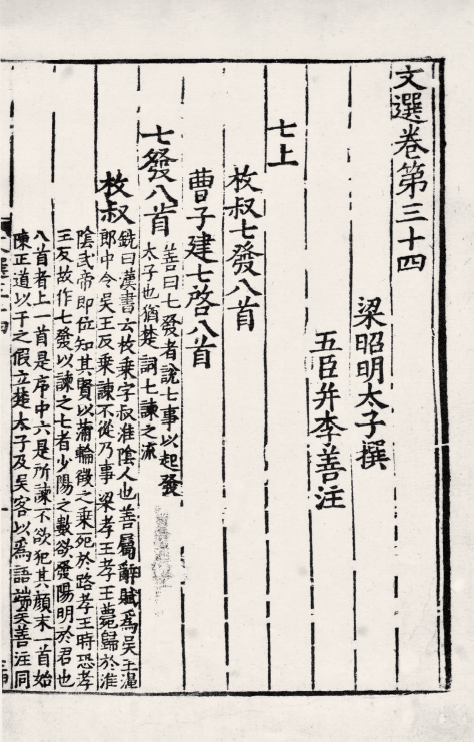 文選卷第三十四
梁昭明太子撰
五臣并李善注
七上
枚叔七發八首
曹子建七啓八首
七發八首
善曰七發者說七事以起發
太子也猶楚詞七諫之流
枚叔
銑曰漢書云枚乘字叔淮陰人也善屬辭賦爲吳王濞
郎中令吳王反乘諫不從乃事梁孝王孝王薨歸於淮
陰武帝即位知其賢以蒲輪徵之乘死於路孝王時恐孝
王反故作七發以諫之七者少陽之數欲發陽明於君也
八首者上一首是序中六是所諫不欲犯其顏末一首始
陳正道以干之假立楚太子及吳客以爲語端矣善注同